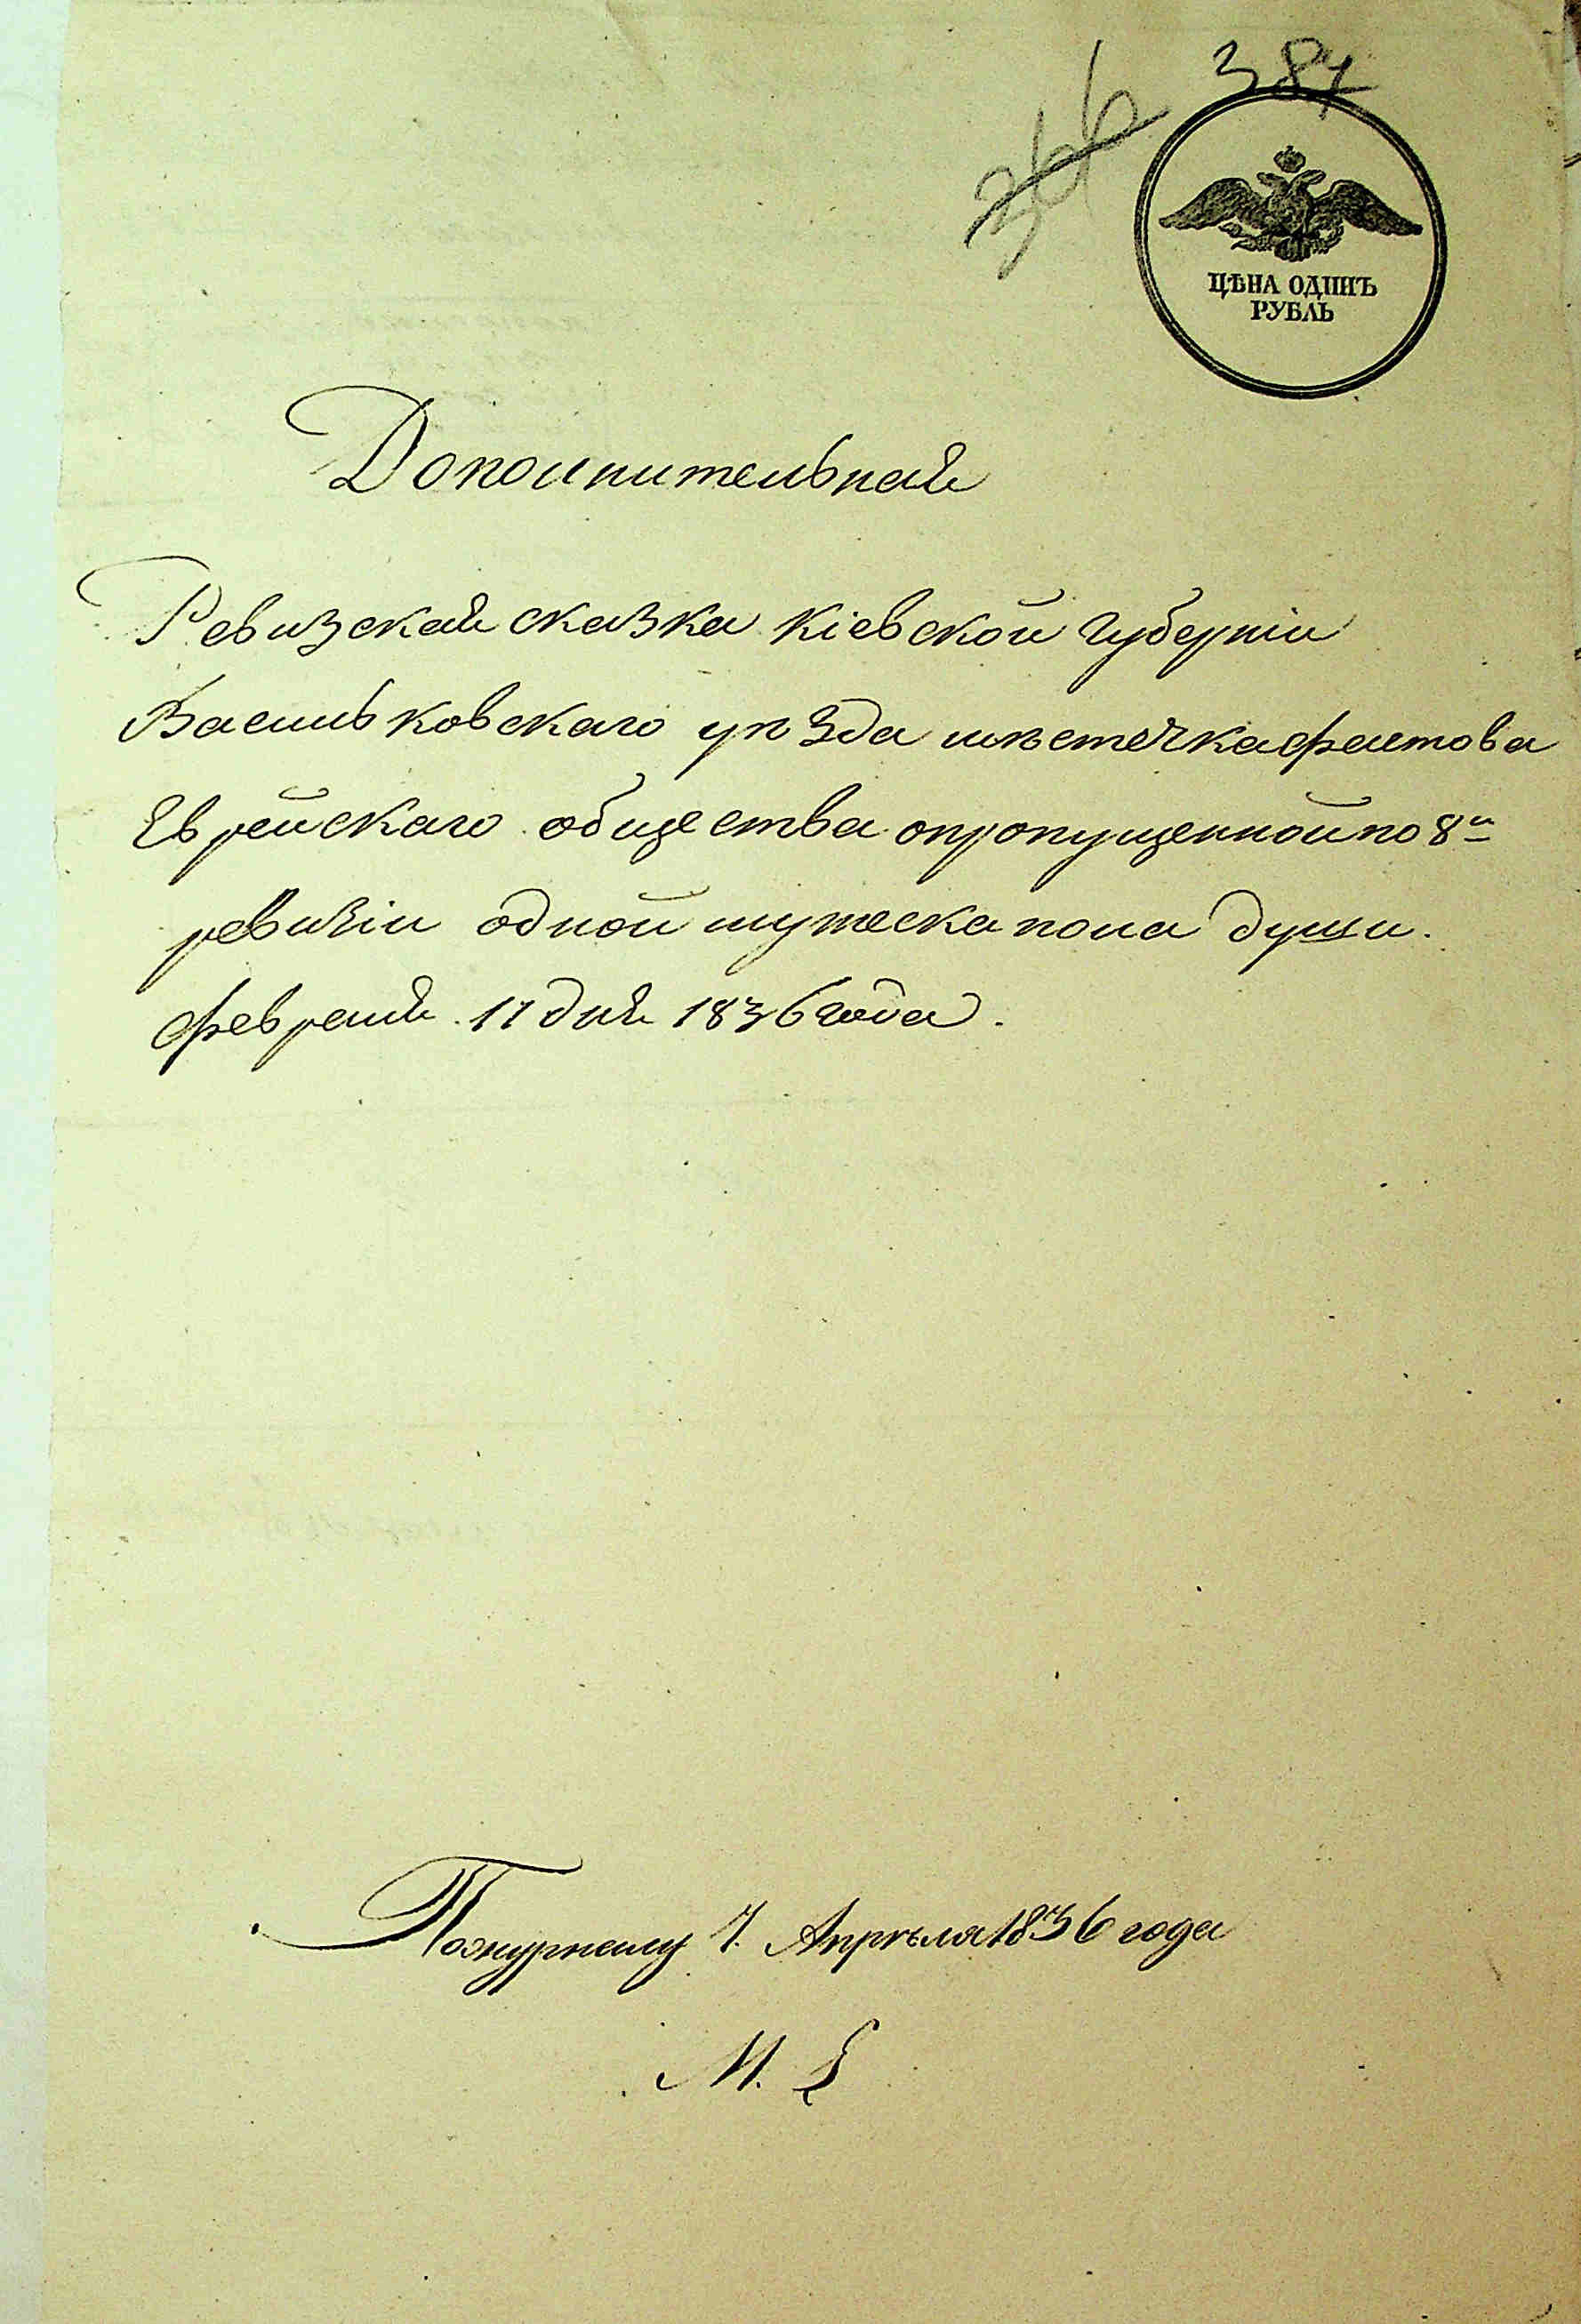 387
366
ЦѢНА ОДИНЪ
РУБЛЬ
Дополнительная
Ревизская сказка Кіевской Губерніи
Васильковскаго уѣзда мѣстечка Фастова
Еврейскаго общества опропущенной по 8й
ревизіи одной мужеска пола души.
Февраля 11 дня 1836 года.
Пожурналу 7. Апрѣля 1836 года
М.